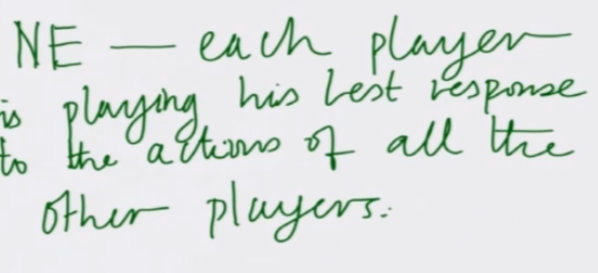 NE — each player
is playing his best response
to the actions of all the
other players.